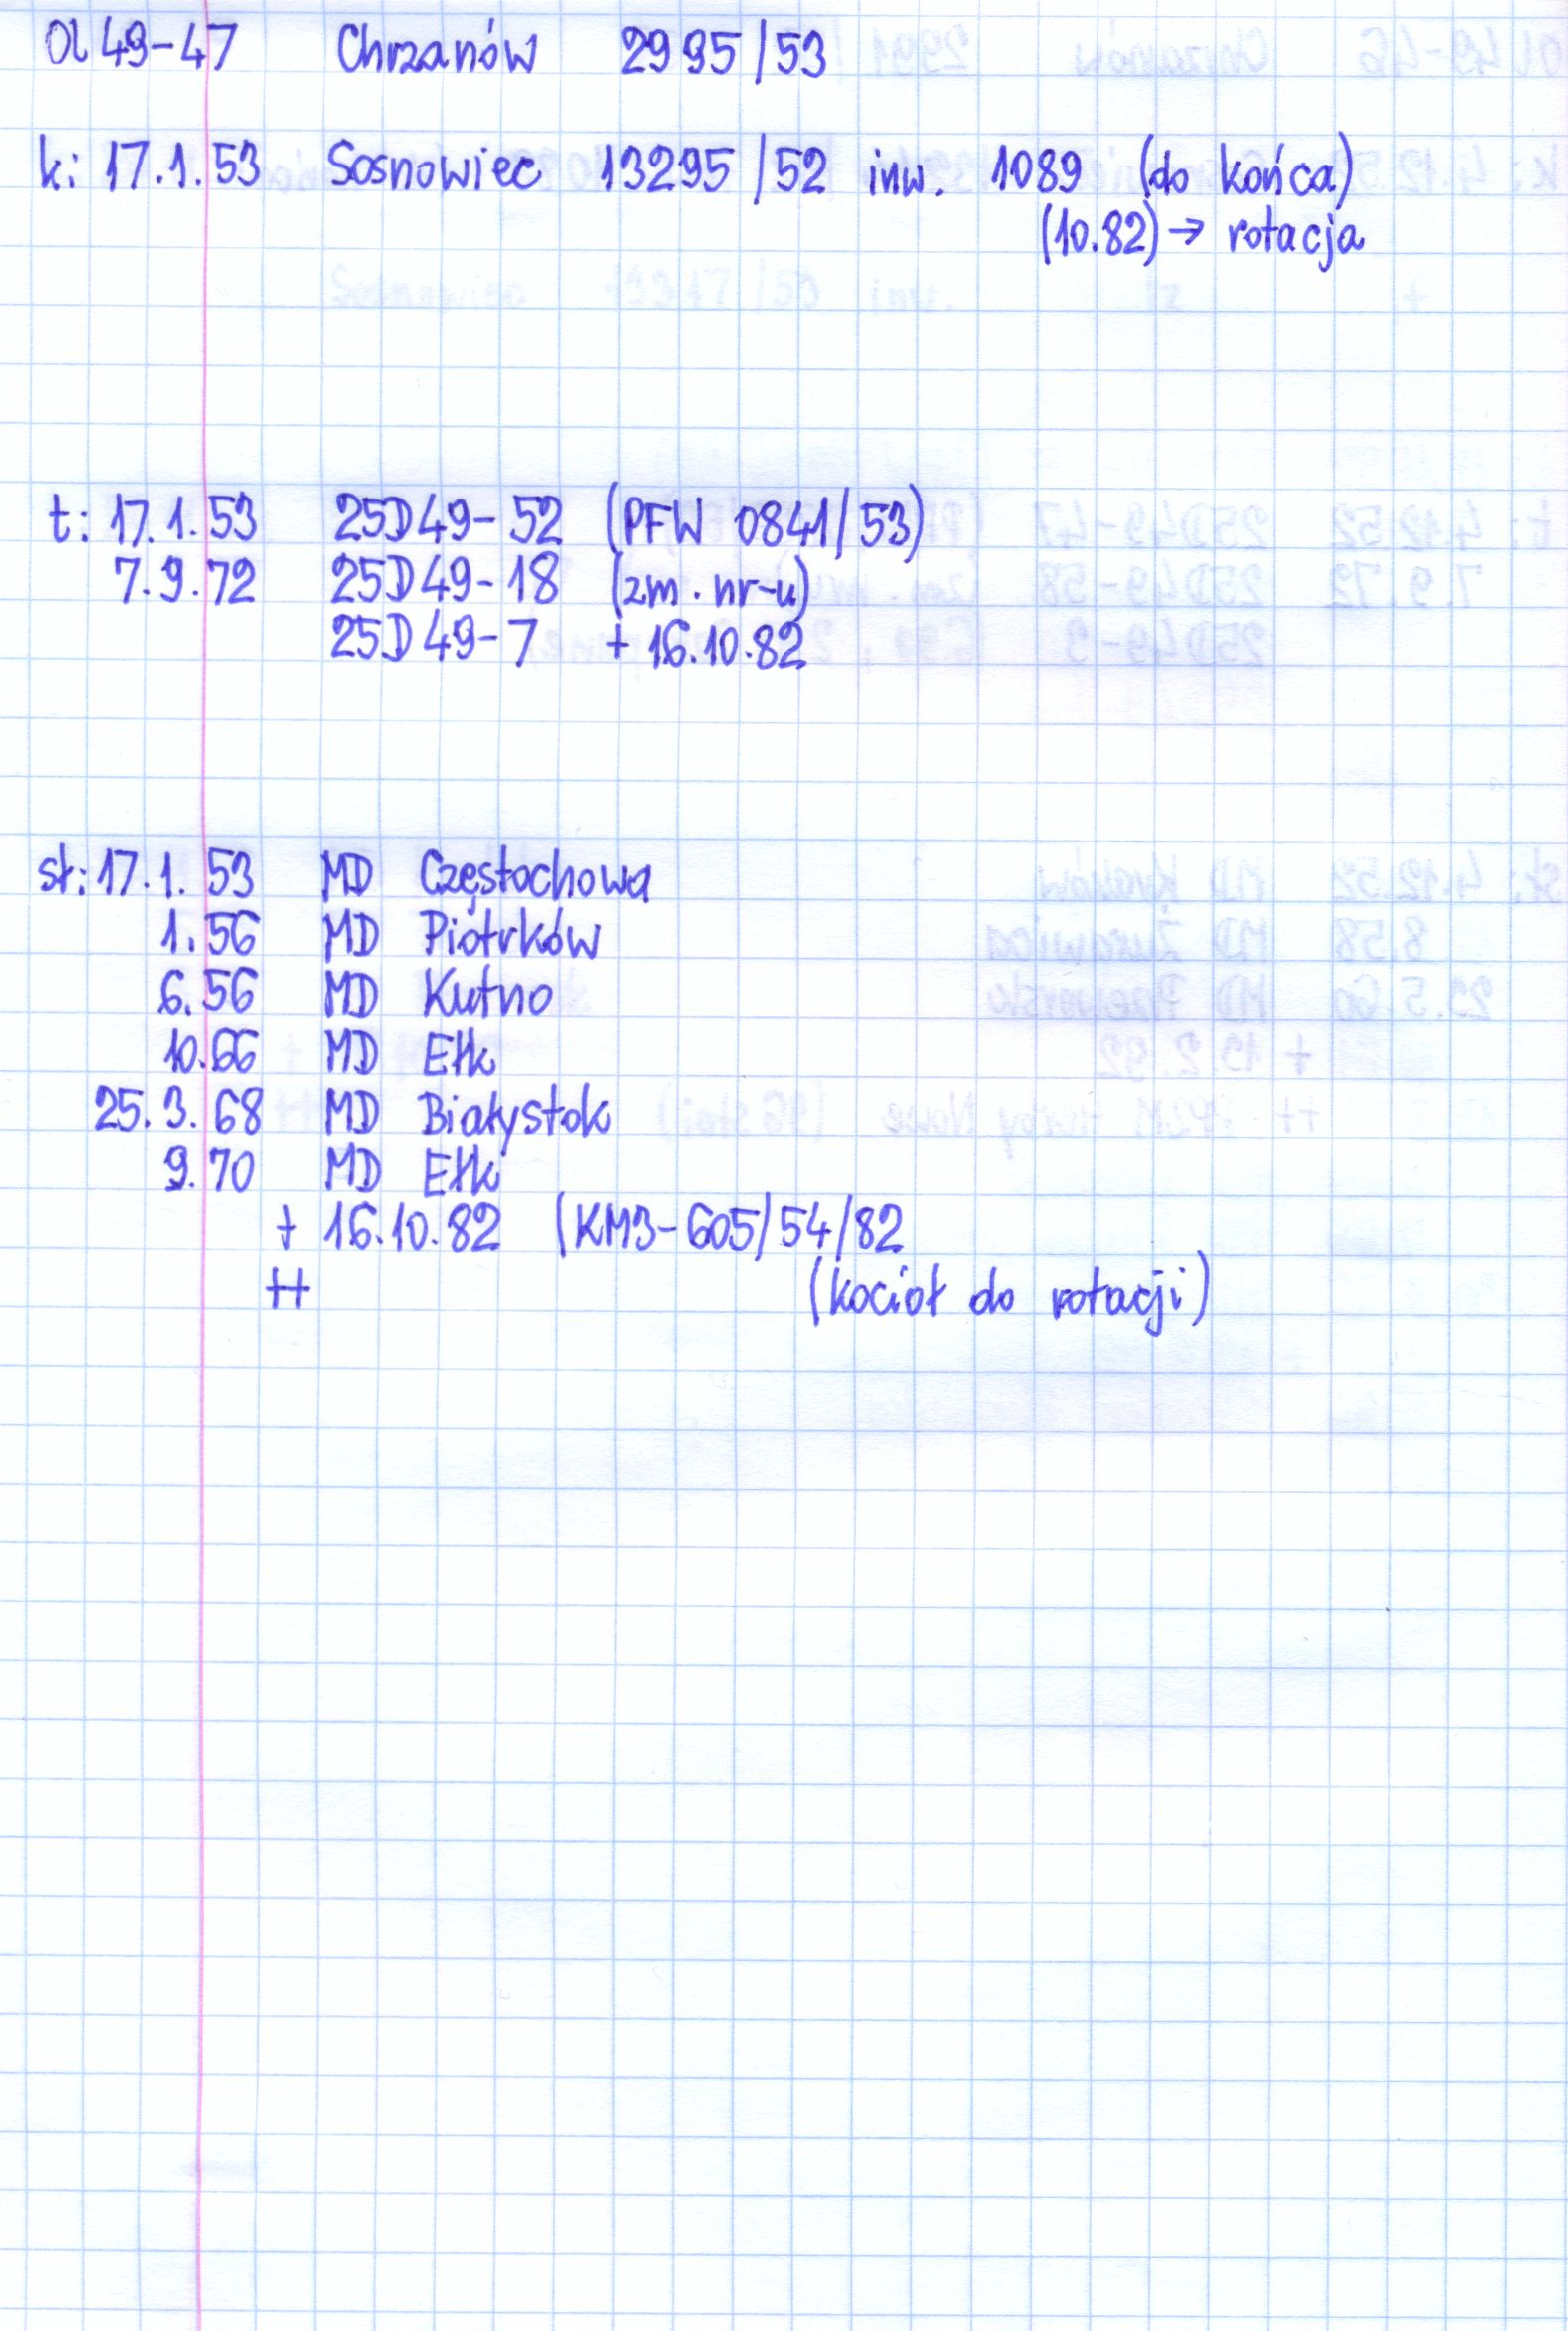 Ol 49-47 Chrzanów 2995/53
k: 17.1.53 Sosnowiec 13295/52 inw. 1089 (do końca)
(10.82) → rotacja
t: 17.1.53 25D49-52 (PFW 0841/53)
7.9.72 25D49-18 (zm. nr-u)
25D49-7 + 16.10.82
st: 17.1.53 MD Częstochowa
1.56 MD Piotrków
6.56 MD Kutno
10.66 MD Ełk
25.3.68 MD Białystok
9.70 MD Ełk
+ 16.10.82 (KM3-605/54/82
++ (kocioł do rotacji)